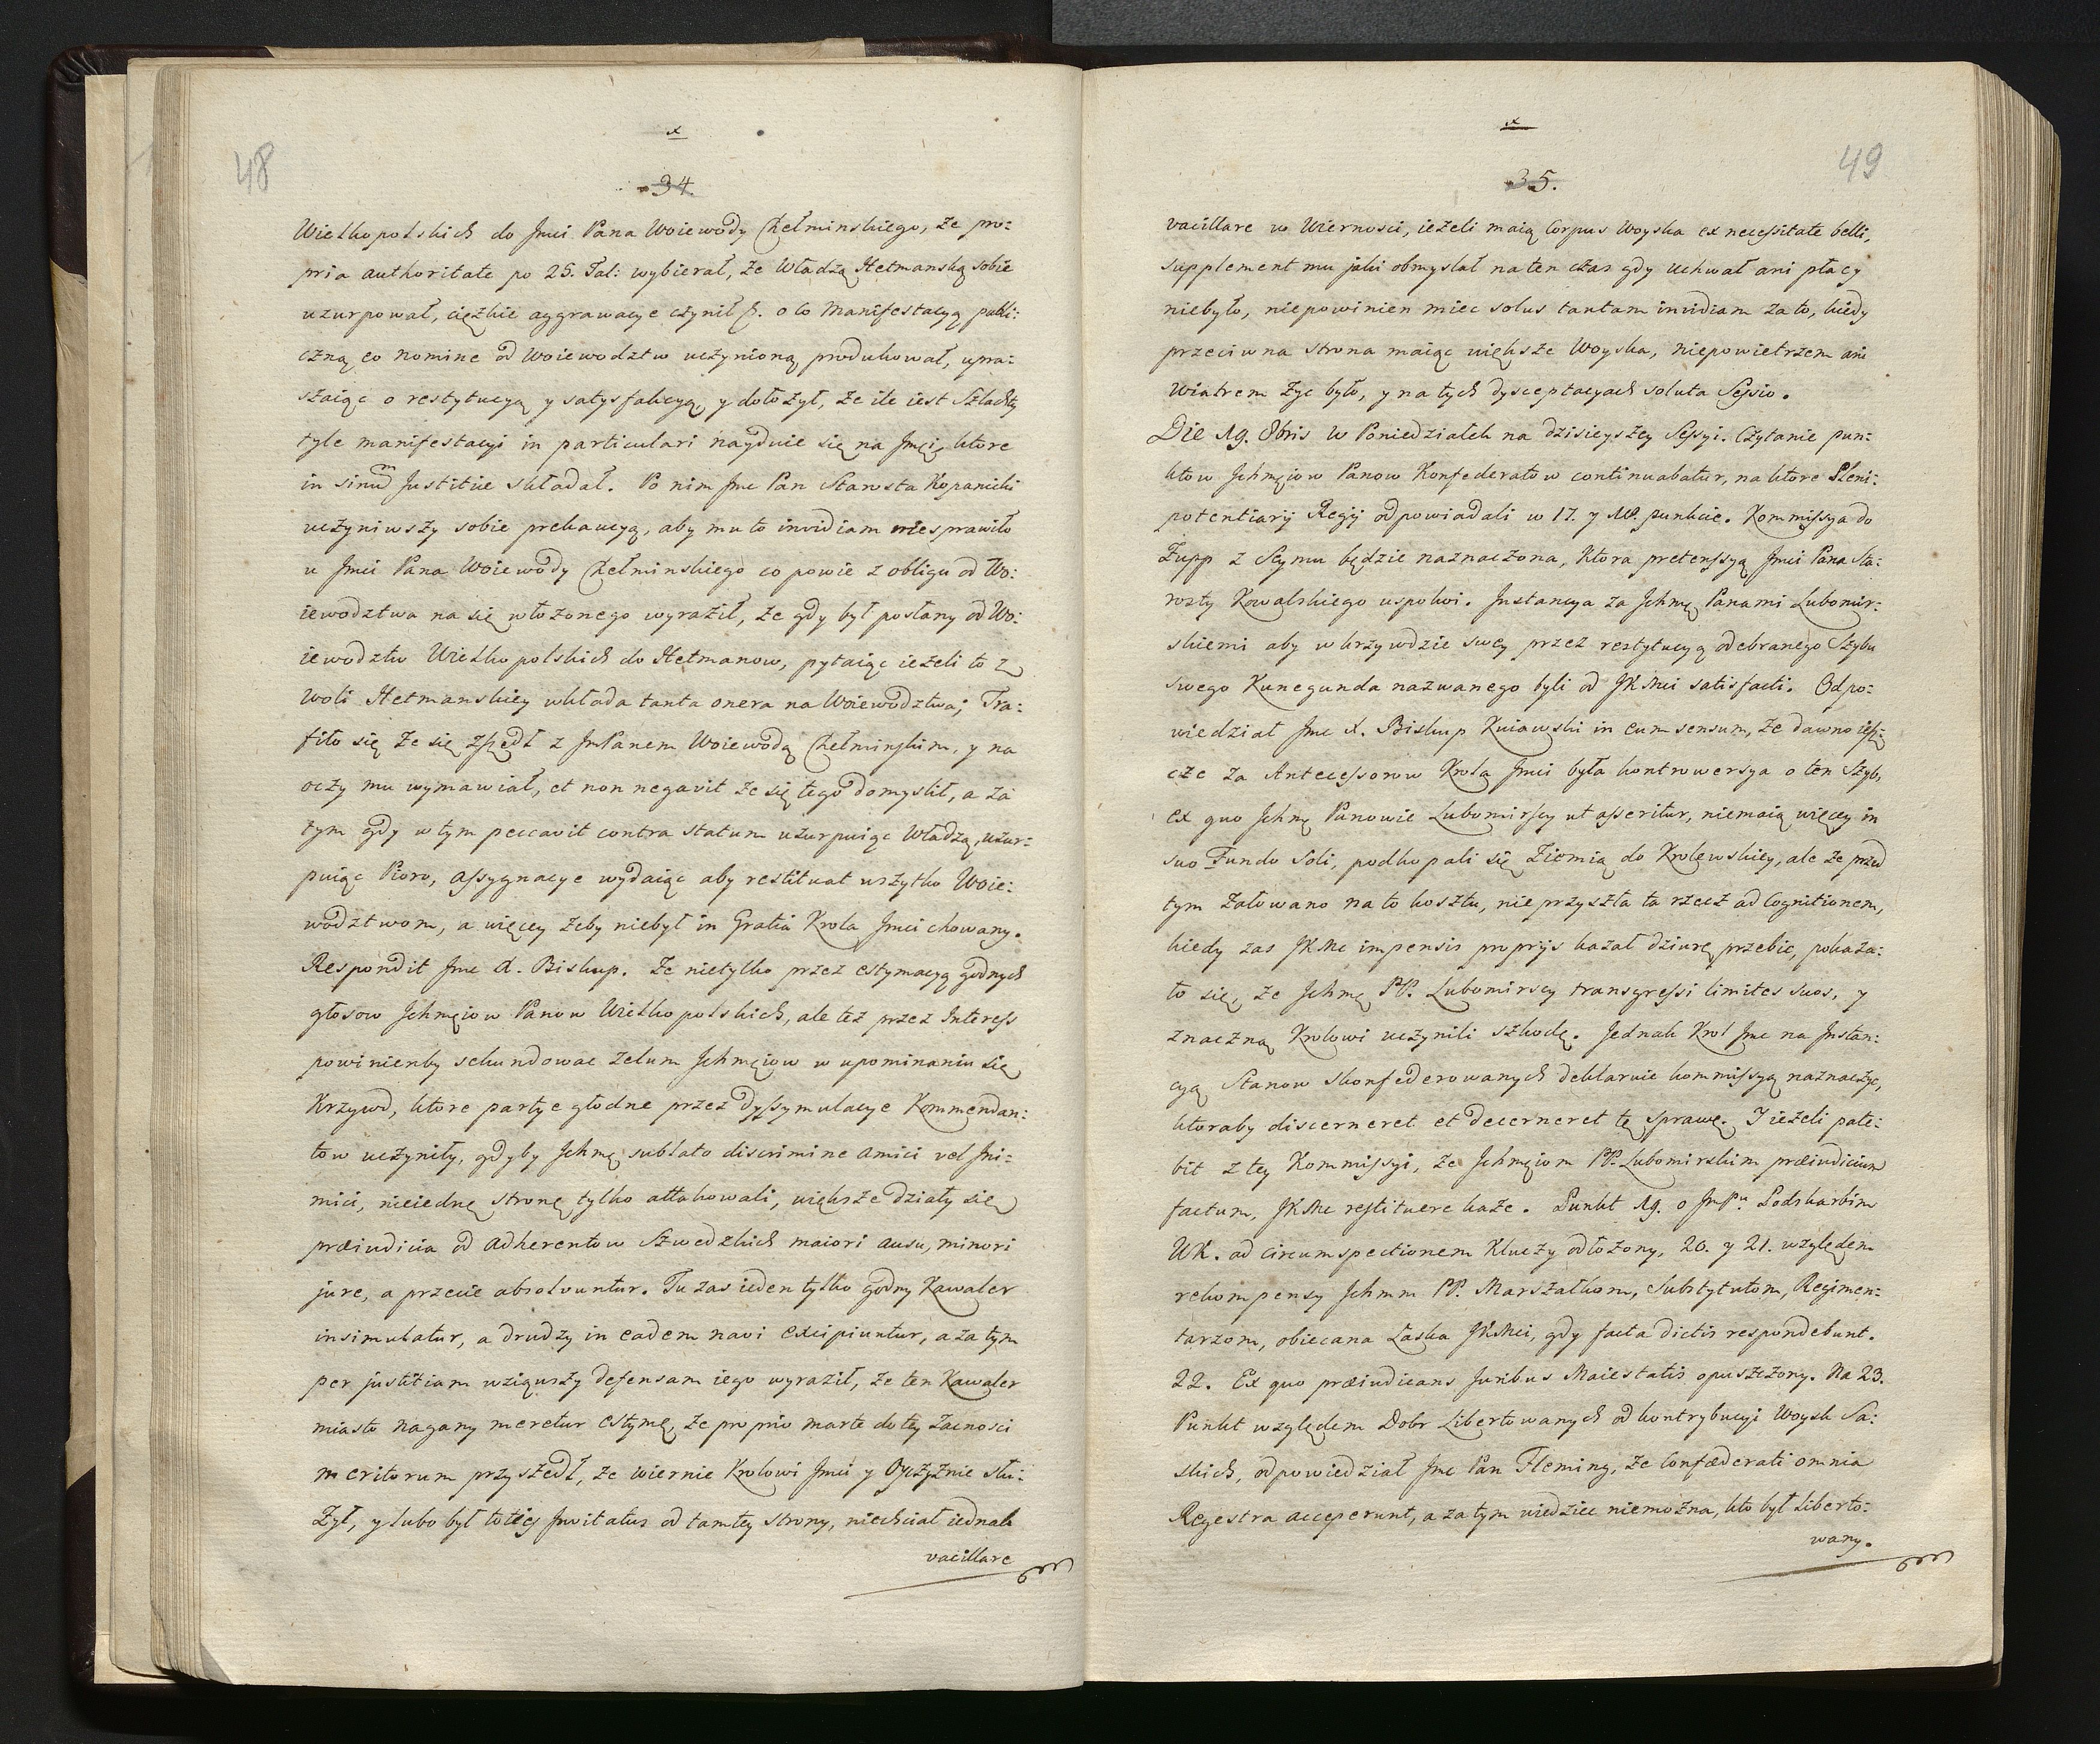 x
48
34.
Wielkopolskich do Jmci Pana Woiewody Chełminskiego, że pro:
pria authoritate po 25. Tal: wybierał, że Władzą Hetmanską sobie
uzurpował, ciężkie aggrawacye czynił p. o co Manifestacyą publi:
czną eo nomine od Woiewodztw uczynioną produkował, upra:
szaiąc o restytucyą y satysfakcyą, y dołożył, że ile iest Szlachty
tyle manifestacyi in particulari nayduie się na Jmci, ktore
in sinum Justitiæ składał. Po nim Jmc Pan Starosta Kopanicki
uczyniwszy sobie prekaucyą, aby mu to invidiam niesprawiło
u Jmci Pana Woiewody Chełminskiego co powie z obligu od Wo:
iewodztwa na się włożonego wyraził, że gdy był posłany od Wo:
iewodztw Wielkopolskich do Hetmanow, pytaiąc ieżeli to z
woli Hetmanskiey wkłada tanta onera na Woiewodztwa; Tra:
fiło się że się zszedł z JmPanem Woiewodą Chełminskim, y na
oczy mu wymawiał, et non negavit że się tego domyslił, a za
tym gdy w tym peccavit contra statum uzurpuiąc Władzą, uzur:
puiąc Pioro, assygnacye wydaiąc aby restituat wszytko Woie:
wodztwom, a więcey żeby niebył in Gratia Krola Jmci chowany.
Respondit Jmc X. Biskup. Że nietylko przez estymacyą godnych
głosow Jchmciow Panow Wielkopolskich, ale też przez Interess
powinienby sekundowac zelum Jchmciow w upominaniu się
Krzywd, ktore partye głodne przez dyssymulacye Kommendan:
tow uczyniły, gdyby Jchmć sublato discrimine amici vel Jni:
mici, nieiednę stronę tylko attakowali, większe działy się
præiudicia od Adherentow Szwedzkich maiori ausu, minori
jure, a przecie absolvuntur. Tu zas ieden tylko godny Kawaler
insimulatur, a drudzy in eadem navi excipiuntur, a za tym
per justitiam wziąwszy defensam iego wyraził, że ten Kawaler
miasto nagany meretur estymę, że proprio marte do tey zacnosci
meritorum przyszedł, że wiernie Krolowi Jmci y Oyczyznie słu:
żył, y lubo był toties Jnvitatus od tamtey strony, niechciał iednak
vacillare
x
49
35.
vacillare w Wiernosci, ieżeli maią Corpus Woyska ex necessitate belli,
supplement mu jaki obmyslał na ten czas gdy uchwał ani płacy
niebyło, niepowinien miec solus tantam invidiam za to, kiedy
przeciwna strona maiąc większe Woyska, niepowietrzem ani
Wiatrem życ było, y na tych dysceptacyach soluta Sessio.
Die 19. 8bris w Poniedziałek na dzisieyszey Sessyi. Czytanie pun:
ktow Jchmciow Panow Konfederatow continuabatur, na ktore Pleni:
potentiarij Regij odpowiadali w 17. y 18. punkcie. Kommissya do
Żupp z Seymu będzie naznaczona, Ktora pretenssyą Jmci Pana Sta:
rosty Kowalskiego uspokoi. Jnstancya za Jchmć Panami Lubomir:
skiemi aby w krzywdzie swey przez restytucyą odebranego Szybu
swego Kunegunda nazwanego byli od JKMci satisfacti. Odpo:
wiedział Jmc X. Biskup Kuiawski in eum sensum, że dawno iesz:
cze za Antecessorow Krola Jmci była kontrowersya o ten Szyb,
ex quo Jchmć Panowie Lubomirscy ut asseritur, niemaią więcey in
suo Fundo Soli, podkopali się Ziemią do Krolewskiey, ale że przed
tym żałowano na to kosztu, nie przyszła ta rzecz ad Cognitionem,
kiedy zas JKMc impensis proprijs kazał dziurę przebic, pokaza:
ło się, że Jchmć PP. Lubomirscy transgressi limites suos, y
znaczną Krolowi uczynili szkodę. Jednak Krol Jmc na Jnstan:
cyą Stanow skonfederowanych deklaruie kommissyą naznaczyc,
ktoraby discerneret et decerneret tę sprawę. J ieżeli pate:
bit z tey Kommissyi, że Jchmciom PP. Lubomirskim præiudicium
factum, JKMc restituere każe. Punkt 19. o JmPu Podskarbim
WK. ad circumspectionem Kluczy odłożony, 20. y 21. względem
rekompensy Jchmm PP. Marszałkom, Substytutom, Regimen:
tarzom, obiecana Łaska JKMci, gdy facta dictis respondebunt.
22. Ex quo præiudicans Juribus Maiestatis opuszczony. Na 23.
Punkt względem Dobr Libertowanych od kontrybucyi Woysk Sa:
skich, odpowiedział Jmc Pan Fleming, że Confæderati omnia
Regestra acceperunt, a za tym wiedziec niemożna, kto był liberto:
wany.